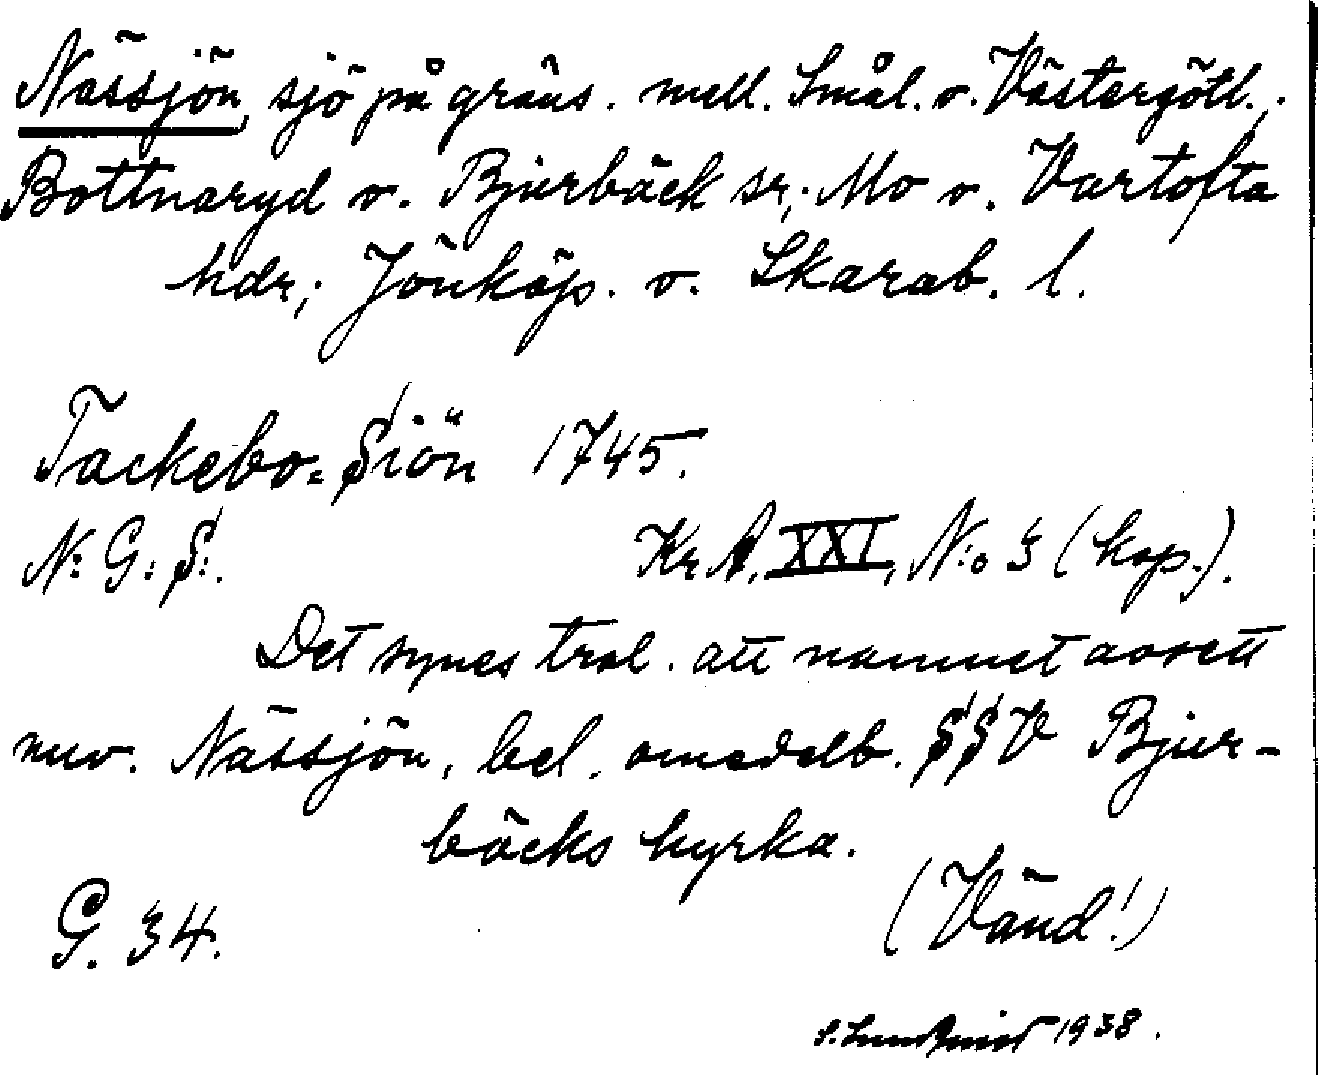 Nässjön, sjö på gräns. mell. Smål. o. Västergötl.;
Bottnaryd o. Bjurbäck sr; Mo o. Vartofta
hdr; Jönköp. o. Skarab. l.
Tackebo=Siön 1745.
N: G: S:.
Kr. A. XXI, N:o 3 (kop.).
Det synes trol. att namnet avsett
nuv. Nässjön, bel. omedelb. SSV Bjur-
bäcks kyrka.
(Vänd!)
G. 34.
S. Lundquist 1938.